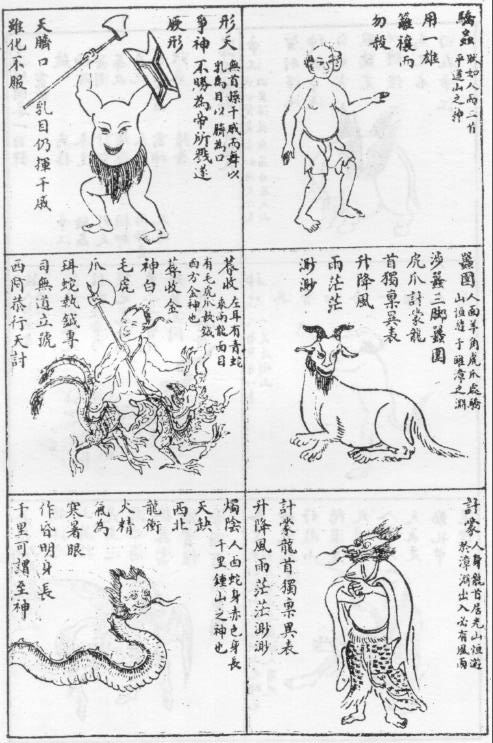 驕蟲 狀如人而二首
平逢山之神
用雄
雞禳而
勿殺
形天 無首操干戚而舞以
乳為目以臍為口
爭神不勝為帝所戮遂
厥形
天臍口 乳目仍揮干戚
雖化不服
圍 人面羊角虎爪處驕
山恒遊于睢漳之淵
涉三脚圍
虎爪計蒙龍
首獨稟異表
升降風
雨茫茫
渺渺
蓐收 左耳有青蛇
乘兩龍面目
有毛虎爪執鉞
西方金神也
蓐收金
神白
毛虎
爪
珥蛇執鉞專
司無道立號
西阿恭行天討
計蒙 人身龍首居光山恒遊
於漳淵出入必有風雨
計蒙龍首獨稟異表
升降風雨茫茫渺渺
燭陰 人面蛇身赤色身長
千里鍾山之神也
天缺
西北
龍銜
火精
氣為
寒暑眼
作昏明身長
千里可謂至神